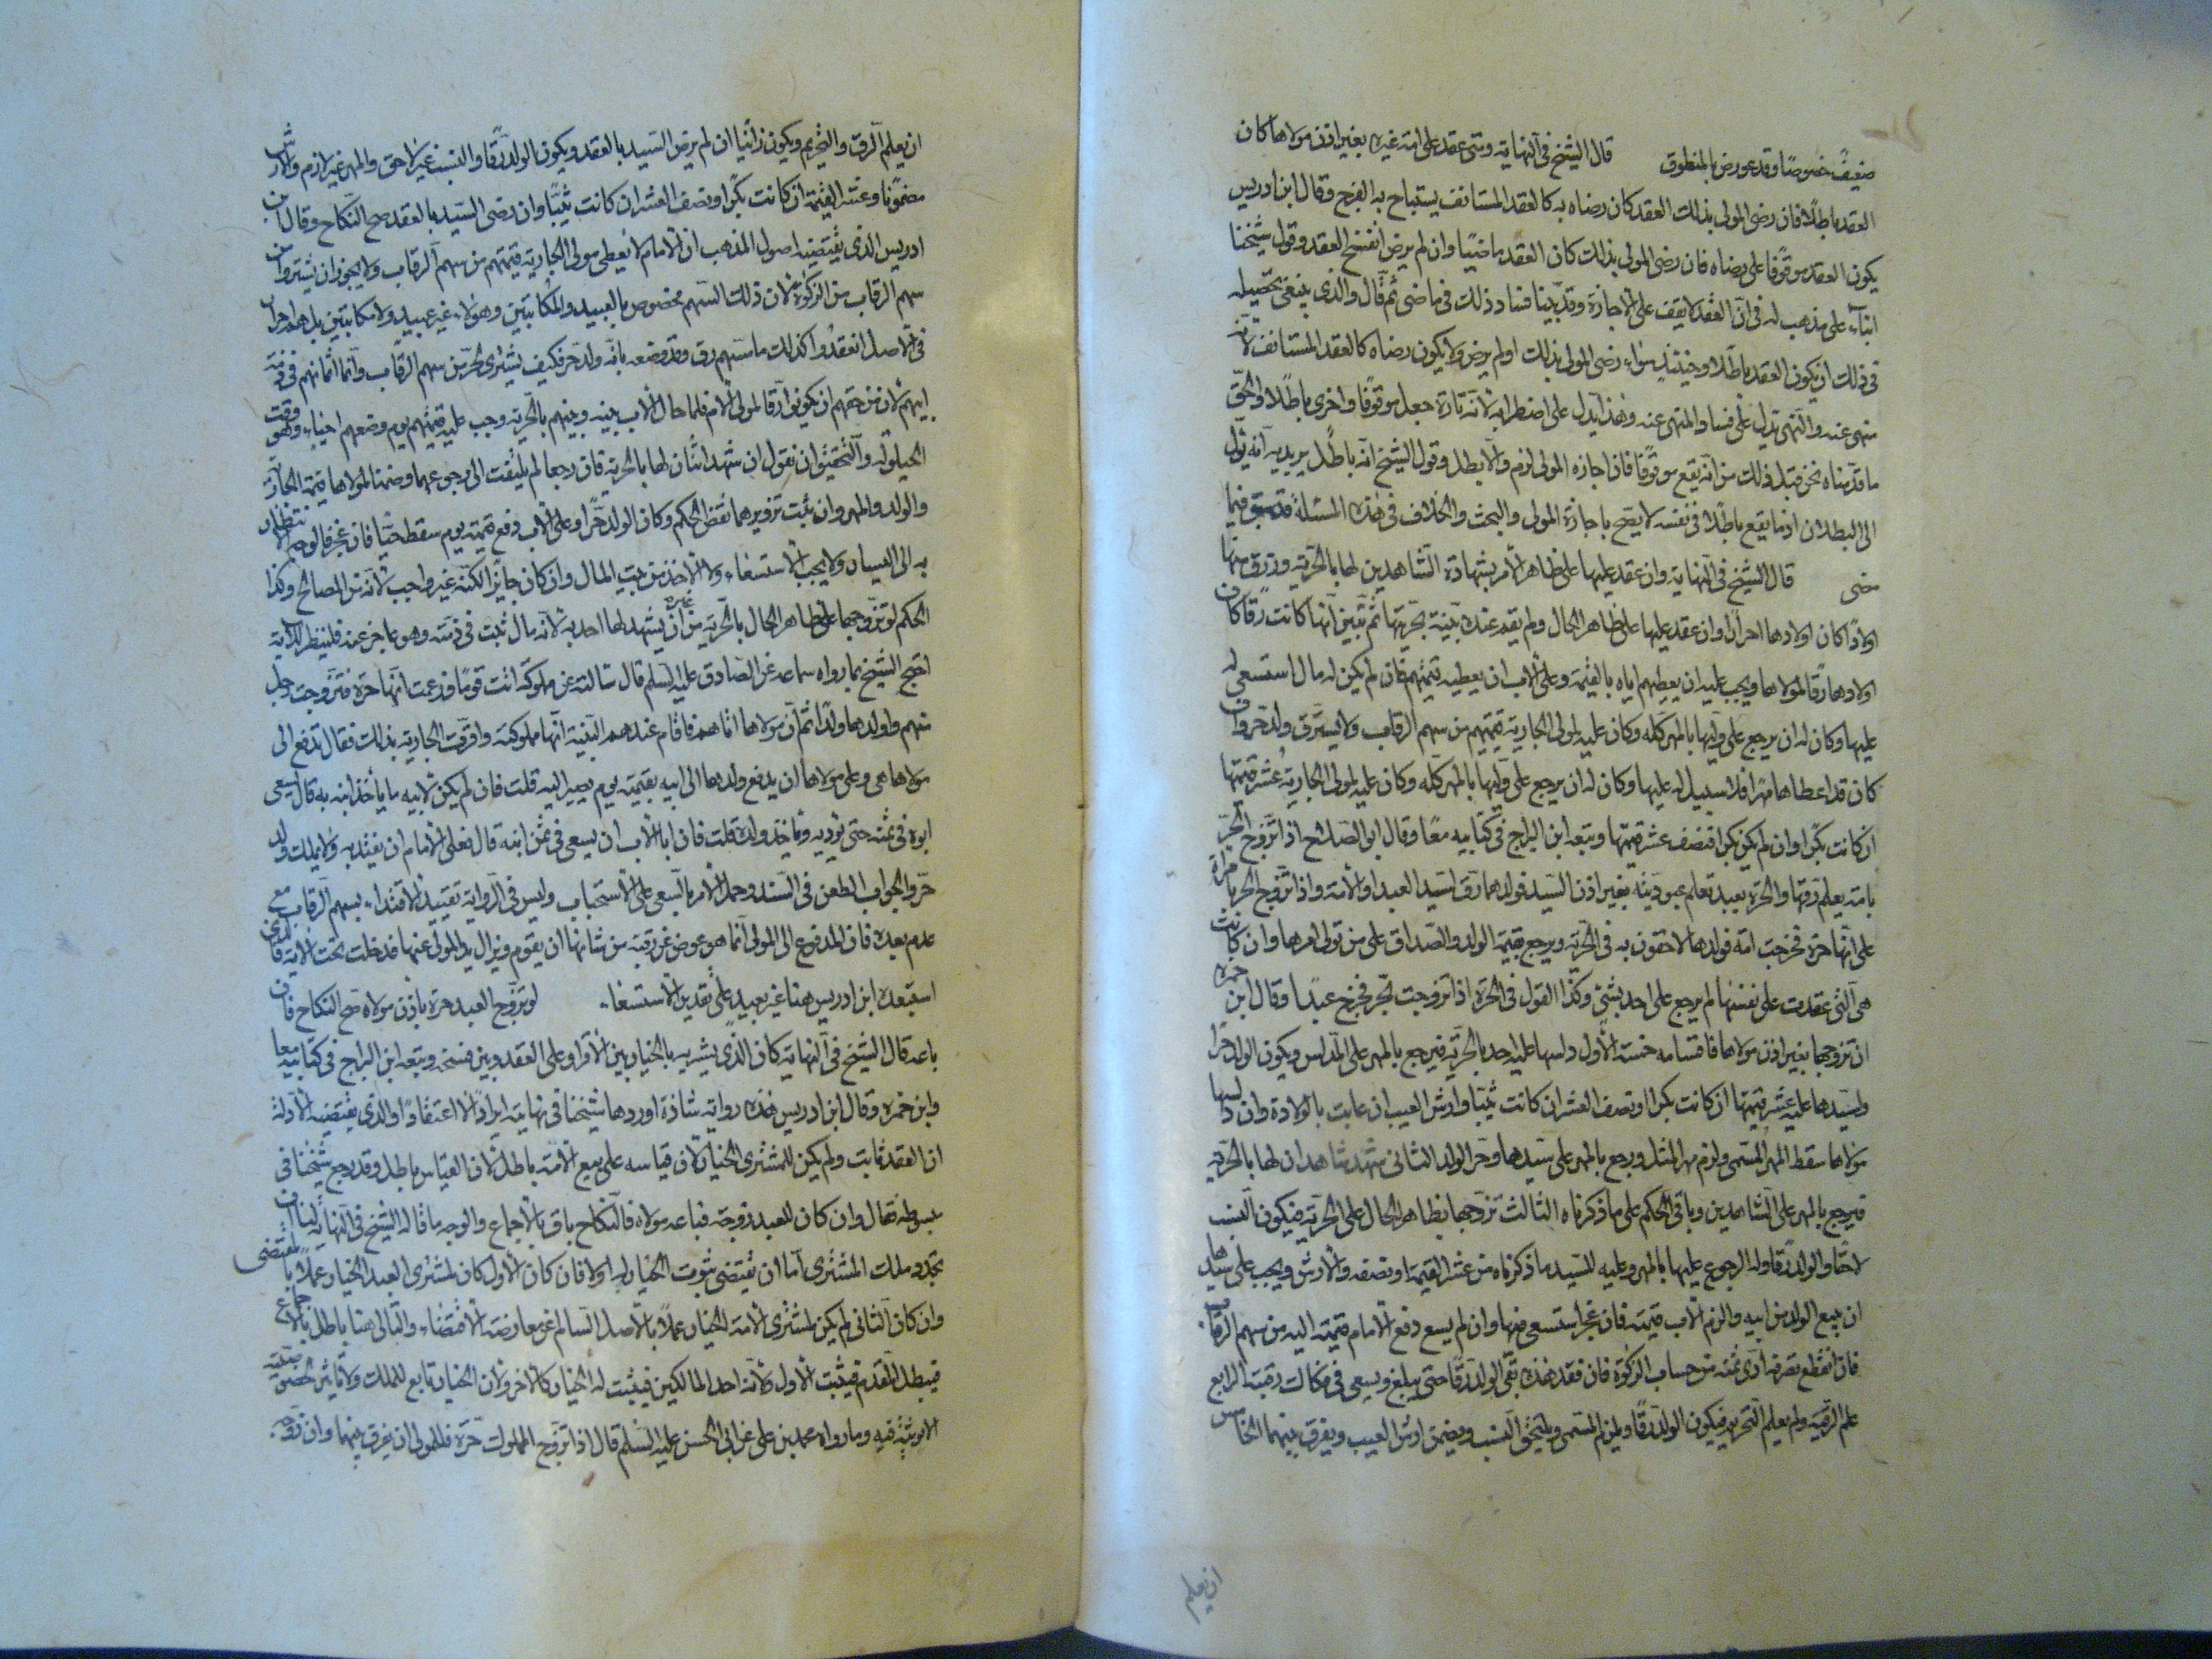 ضعيف خصوصًا وقد عورض بالمنطوق قال الشيخ في النهاية ومتى عقد على امة غيره بغير اذن مولاها كان
العقد باطلًا فان رضى المولى بذلك العقد كان رضاه به كالعقد المستانف يستباح به الفرج وقال ابن ادريس
يكون العقد موقوفا على رضاه فان رضى المولى بذلك كان العقد ماضيًا وان لم يرض انفسخ العقد وقول شيخنا
ابتناء على مذهب له في ان العقد لا يقف على الاجازة وقد بينا فساد ذلك فيما مضى ثم قال والذى ينبغى تحصيله
في ذلك ان يكون العقد باطلًا وحينئذٍ سواء رضى المولى بذلك او لم يرض ولا يكون رضاه كالعقد المستانف لانه
منهى عنه والنهى يدل على فساد المنهى عنه وهذا يدل على اضطرابه لانه تارة جعل موقوفا واخرى باطلًا والحق
ما قدمناه نحن قبل ذلك من انه يقع موقوفا فان اجازه المولى لزم والا بطل وقول الشيخ انه باطل يريد به انه يؤل
الى البطلان اذ ما يقع باطلًا في نفسه لا يصح باجازة المولى والبحث والخلاف في هذه المسئلة قد سبق فيما
مضى قال الشيخ في النهاية وان عقد عليها على ظاهر الامر بشهادة الشاهدين لها بالحرية ورزق منها
اولادًا كان اولادها احرارا وان عقد عليها على ظاهر الحال ولم يقم عنده بينة بحريتها ثم تبين انها كانت رقًا كان
اولادها رقا لمولاها ويجب عليه ان يعطيهم اياه بالقيمة وعلى الاب ان يعطيه قيمتهم فان لم يكن له مال استسعى له
عليها وكان له ان يرجع على وليها بالمهر كله وكان عليه لمولى الجارية قيمتهم من سهم الرقاب ولا يسترق ولد حر وان
كان قد اعطاها مهرا فلا سبيل له عليها وكان له ان يرجع على وليها بالمهر كله وكان عليه لمولى الجارية عشر قيمتها
ان كانت بكرًا وان لم يكن بكرا فنصف عشر قيمتها وتبعه ابن البراج في كتابيه معًا وقال ابو الصلاح اذا تزوج الحر
بامة يعلم رقها والحرة بعبد تعلم عبوديته بغير اذن السيد فولدهما رق لسيد العبد او الامة واذا تزوج الحر بامراة
على انها حرة فخرجت امة فولدها لاحقون به في الحرية ويرجع بقيمة الولد والصداق على من تولى امرها وان كانت
هى التى عقدت على نفسها لم يرجع على احد بشئ وكذا القول في الحرة اذا تزوجت بحر فخرج عبدًا وقال ابن حمزه
ان تزوجها بغير اذن مولاها فاقسامه خمسة الاول دلسها عليه احد بالحرية فيرجع بالمهر على المدلس ويكون الولد حرًا
ولسيدها عليه عشر قيمتها ان كانت بكرا او نصف العشر ان كانت ثيبًا وارش العيب ان عابت بالولادة وان دلسها
مولاها سقط المهر المسمى ولزم مهر المثل ورجع بالمهر على سيدها وحر الولد الثانى شهد شاهدان لها بالحرية
فيرجع بالمهر على الشاهدين وباقى الحكم على ما ذكرناه الثالث تزوجها بظاهر الحال على الحرية فيكون النسب
لاحقًا والولد رقا وله الرجوع عليها بالمهر وعليه للسيد ما ذكرناه من عشر القيمة او نصفه والارش ويجب على سيدها
ان يبيع الولد من ابيه والزم الاب قيمته فان عجز استسعى فيها وان لم يسع دفع الامام قيمته اليه من سهم الرقاب
فان انقطع تصرفه ادى ثمنه من حساب الزكوة فان فقد هذه بقى الولد رقًا حتى يبلغ ويسعى في فكاك رقبته الرابع
علم الرقية ولم يعلم التحريم فيكون الولد رقًا ويلزم المسمى ويلتحق النسب ويضمن ارش العيب ويفرق بينهما الخامس
ان يعلم
ان يعلم الرق والتحريم ويكون زانيًا ان لم يرض السيد بالعقد ويكون الولد رقًا والنسب غير لاحق والمهر غير لازم والارش
مضمونًا وعشر القيمة ان كانت بكرًا ونصف العشر ان كانت ثيبًا وان رضى السيد بالعقد صح النكاح وقال ابن
ادريس الذى يقتضيه اصول المذهب ان الامام لا يعطى مولى الجارية قيمتهم من سهم الرقاب ولا يجوز ان يشتروا من
سهم الرقاب من الزكوة لان ذلك السهم مخصوص بالعبيد والمكاتبين وهؤلاء غير عبيد ولا مكاتبين بل هم احرار
في الاصل انعقدوا كذلك ما مسهم رق وقد وصفه بانه ولد حر فكيف يشترى الحر من سهم الرقاب وانما اثمانهم في ذمة
ابيهم لان من حقهم ان يكونوا رقا لمولى الام فلما حال الاب بينه وبينهم بالحرية وجب عليه قيمتهم يوم وضعهم احياء وهو وقت
الحيلولة والتحقيق ان نقول ان شهد اثنان لها بالحرية فان رجعا لم يلتفت الى رجوعهما وضمنا لمولاها قيمة الجارية
والولد والمهر وان ثبت تزويرهما نقض الحكم وكان الولد حرًا وعلى الاب دفع قيمته يوم سقط حيًا فان عجز فالوجه الانتظار
به الى اليسار ولا يجب الاستسعاء ولا الاخذ من بيت المال وان كان جايزا لكنه غير واجب لانه من المصالح وكذا
الحكم لو تزوجها على ظاهر الحال بالحرية من غير ان يشهد لها احد به لانه مال ثبت في ذمته وهو عاجز عنه فلينظر للاية
احتج الشيخ بما رواه سماعه عن الصادق عليه السلم قال سالته عن مملوكة اتت قومًا وزعمت انها حرة فتزوجت رجل
منهم واولدها ولدًا ثم ان مولاها اتاهم فاقام عندهم البينة انها مملوكة واقرت الجارية بذلك فقال تدفع الى
مولاها هى وعلى مولاها ان يدفع ولدها الى ابيه بقيمته يوم يصير اليه قلت فان لم يكن لابيه ما يأخذ ابنه به قال يسعى
ابوه في ثمنه حتى يؤديه وياخذ ولده قلت فان ابا الاب ان يسعى في ثمن ابنه قال فعلى الامام ان يفتديه ولا يملك ولد
حر والجواب الطعن في السند وحمل الامر بالسعى على الاستحباب وليس في الرواية تقييد الافتداء بسهم الرقاب مع
عدم بعده فان المدفوع الى المولى انما هو عوض عن رقبة من شانها ان يقوم ويزال يد المولى عنها فدخلت تحت الاية فالذى
استبعده ابن ادريس هنا غير بعيد على تقدير الاستسعاء لو تزوج العبد حرة باذن مولاه صح النكاح فان
باعه قال الشيخ في النهاية كان الذى يشتريه بالخيار بين الاقرار على العقد وبين فسخه وتبعه ابن البراج في كتابيه معا
وابن حمزه وقال ابن ادريس هذه رواية شاذة اوردها شيخنا في نهايته ايرادًا لا اعتقادًا والذى يقتضيه الادلة
ان العقد ثابت ولم يكن للمشترى الخيار لان قياسه على بيع الامة باطل لان القياس باطل وقد رجع شيخنا في
مبسوطه فقال وان كان للعبد زوجة فباعه مولاه فالنكاح باق بالاجماع والوجه ما قاله الشيخ في النهاية لنا ان
تجدد ملك المشترى اما ان يقتضى ثبوت الخيار له اولا فان كان الاول كان لمشترى العبد الخيار عملًا بالمقتضى
وان كان الثانى لم يكن لمشترى الامة الخيار عملًا بالاصل السالم عن معارضة الاقتضاء والتالى هنا باطل بالاجماع
فيبطل المقدم فيثبت الاول ولانه احد المالكين فيثبت له الخيار كالاخر ولان الخيار تابع للملك ولا تاثير لخصوصية
الانوثية فيه وما رواه محمد بن على عن ابى الحسن عليه السلم قال اذا تزوج المملوك حرة فللمولى ان يفرق بينهما وان زوجه